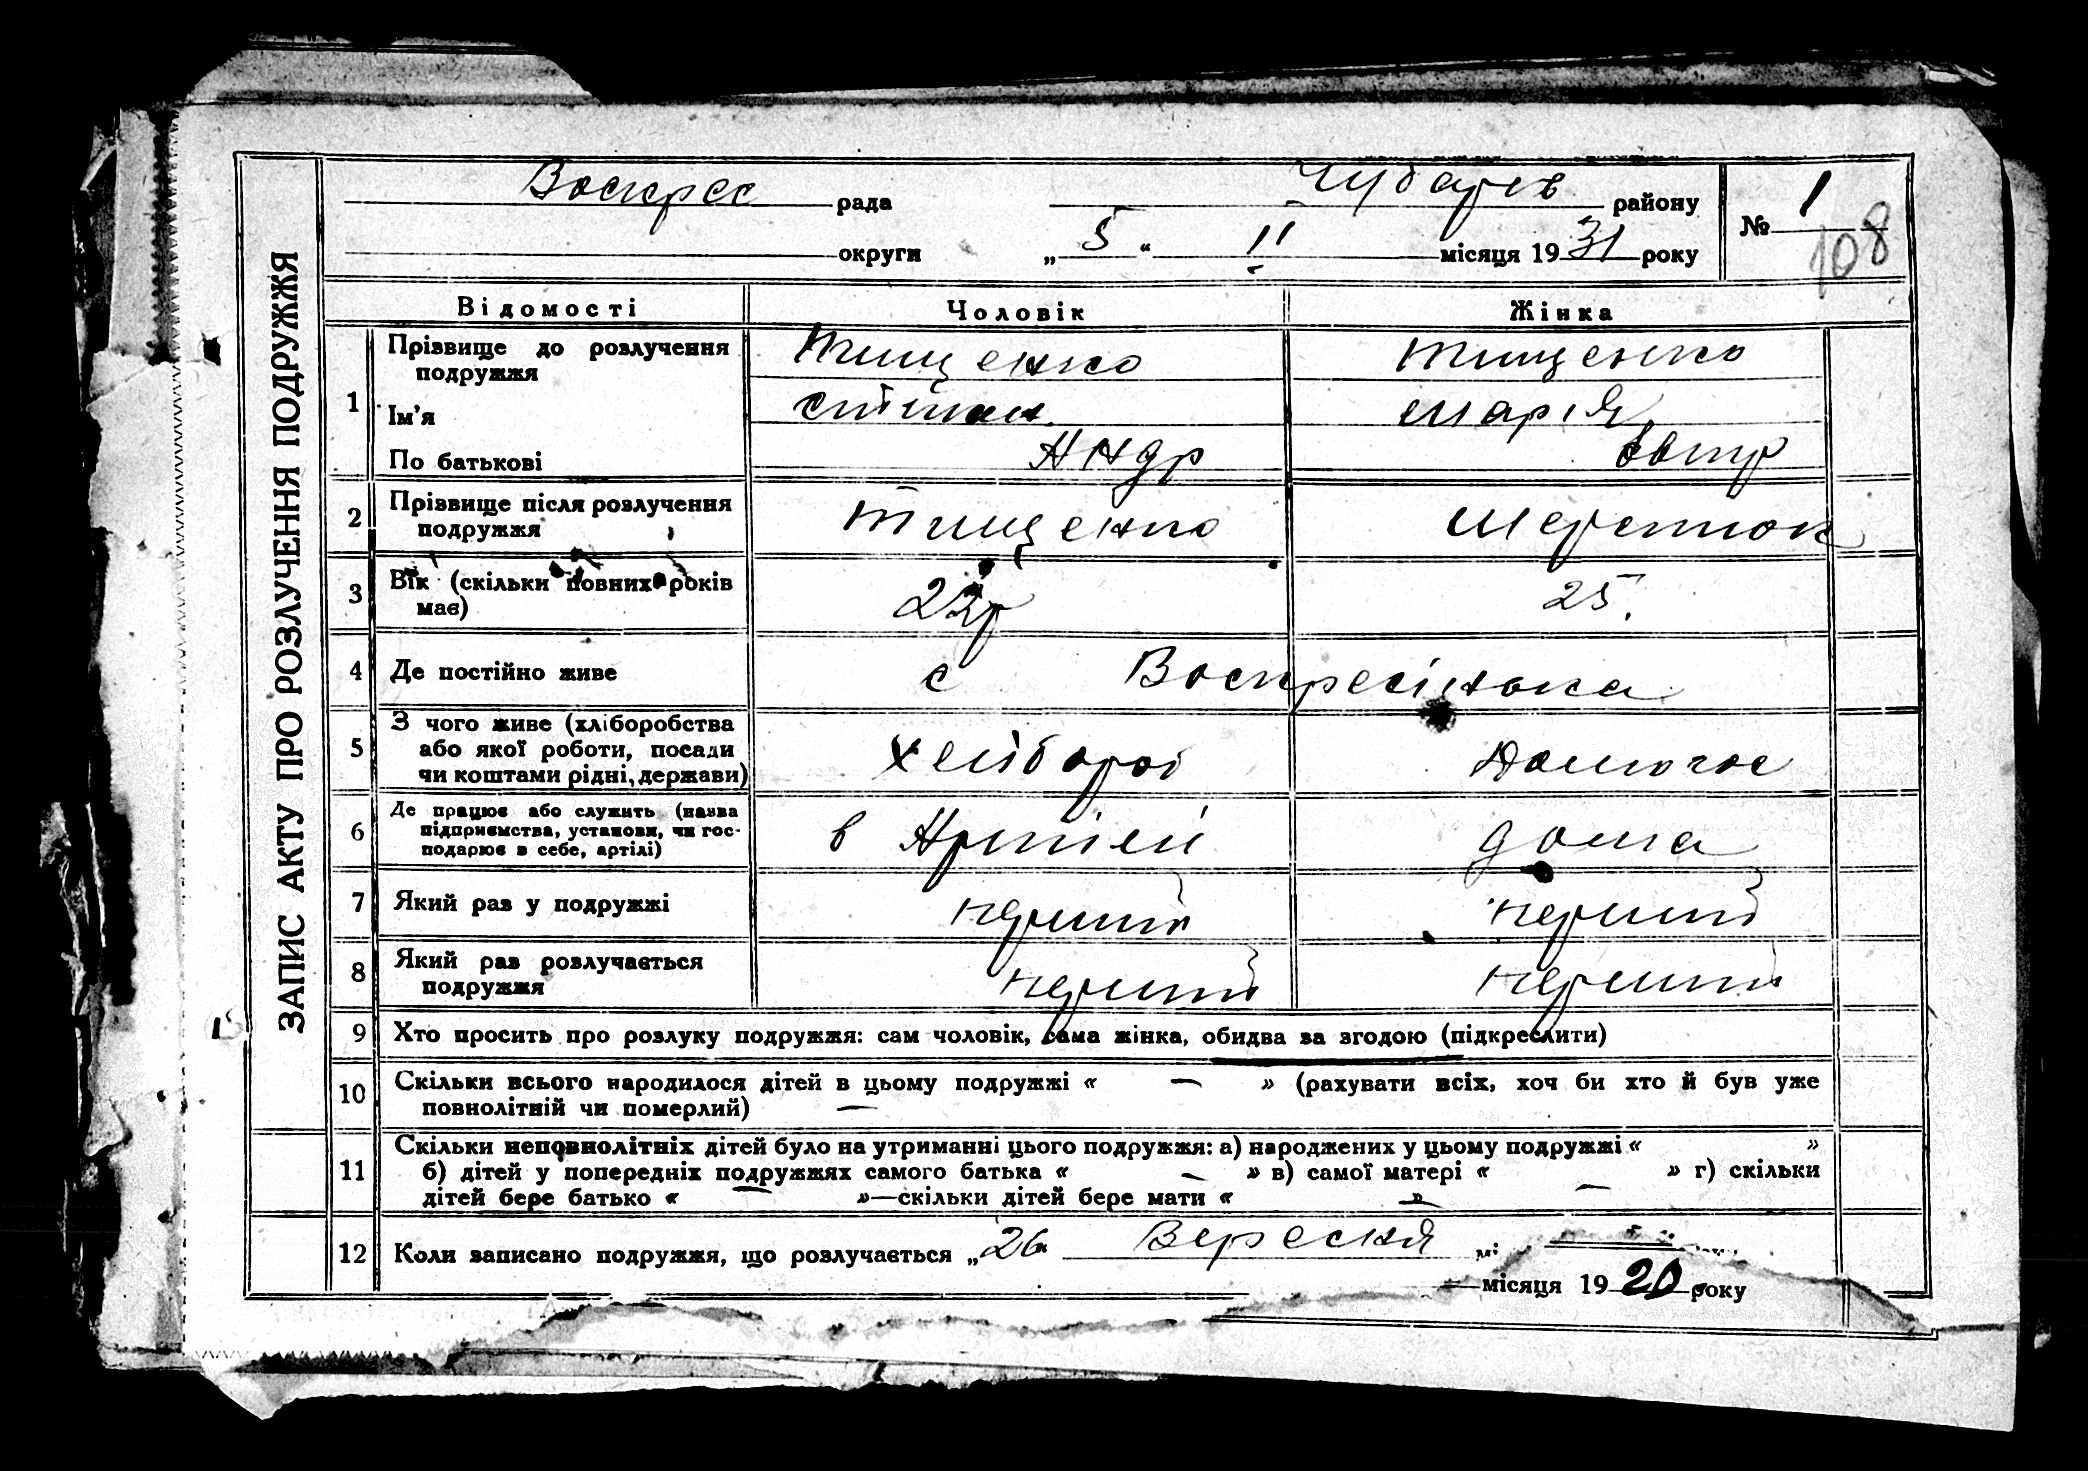 ЗАПИС АКТУ ПРО РОЗЛУЧЕННЯ ПОДРУЖЖЯ
Воскрес рада Чубарев району
№ 1
108
округи „5“ II місяця 1931 року
Відомості Чоловік Жінка
1 Прізвище до розлучення подружжя Тищенко Тищенко
Ім'я Степан Марія
По батькові Андр
2 Прізвище після розлучення подружжя Тищенко
3 Вік (скільки повних років має) 23р 25.
4 Де постійно живе с Воскресінька
5 З чого живе (хліборобства або якої роботи, посади чи коштами рідні, держави)
6 Де працює або служить (назва підприємства, установи, чи господарює в себе, артілі) в Артілі дома
7 Який раз у подружжі перший перший
8 Який раз розлучається подружжя перший перший
9 Хто просить про розлуку подружжя: сам чоловік, сама жінка, обидва за згодою (підкреслити)
10 Скільки всього народилося дітей в цьому подружжі « — » (рахувати всіх, хоч би хто й був уже
повнолітній чи померлий) —
11 Скільки неповнолітніх дітей було на утриманні цього подружжя: а) народжених у цьому подружжі « »
б) дітей у попередніх подружжях самого батька « — » в) самої матері « — » г) скільки
дітей бере батько « — »—скільки дітей бере мати « — »
12 Коли записано подружжя, що розлучається „26“ Вересня мі
місяця 1920 року